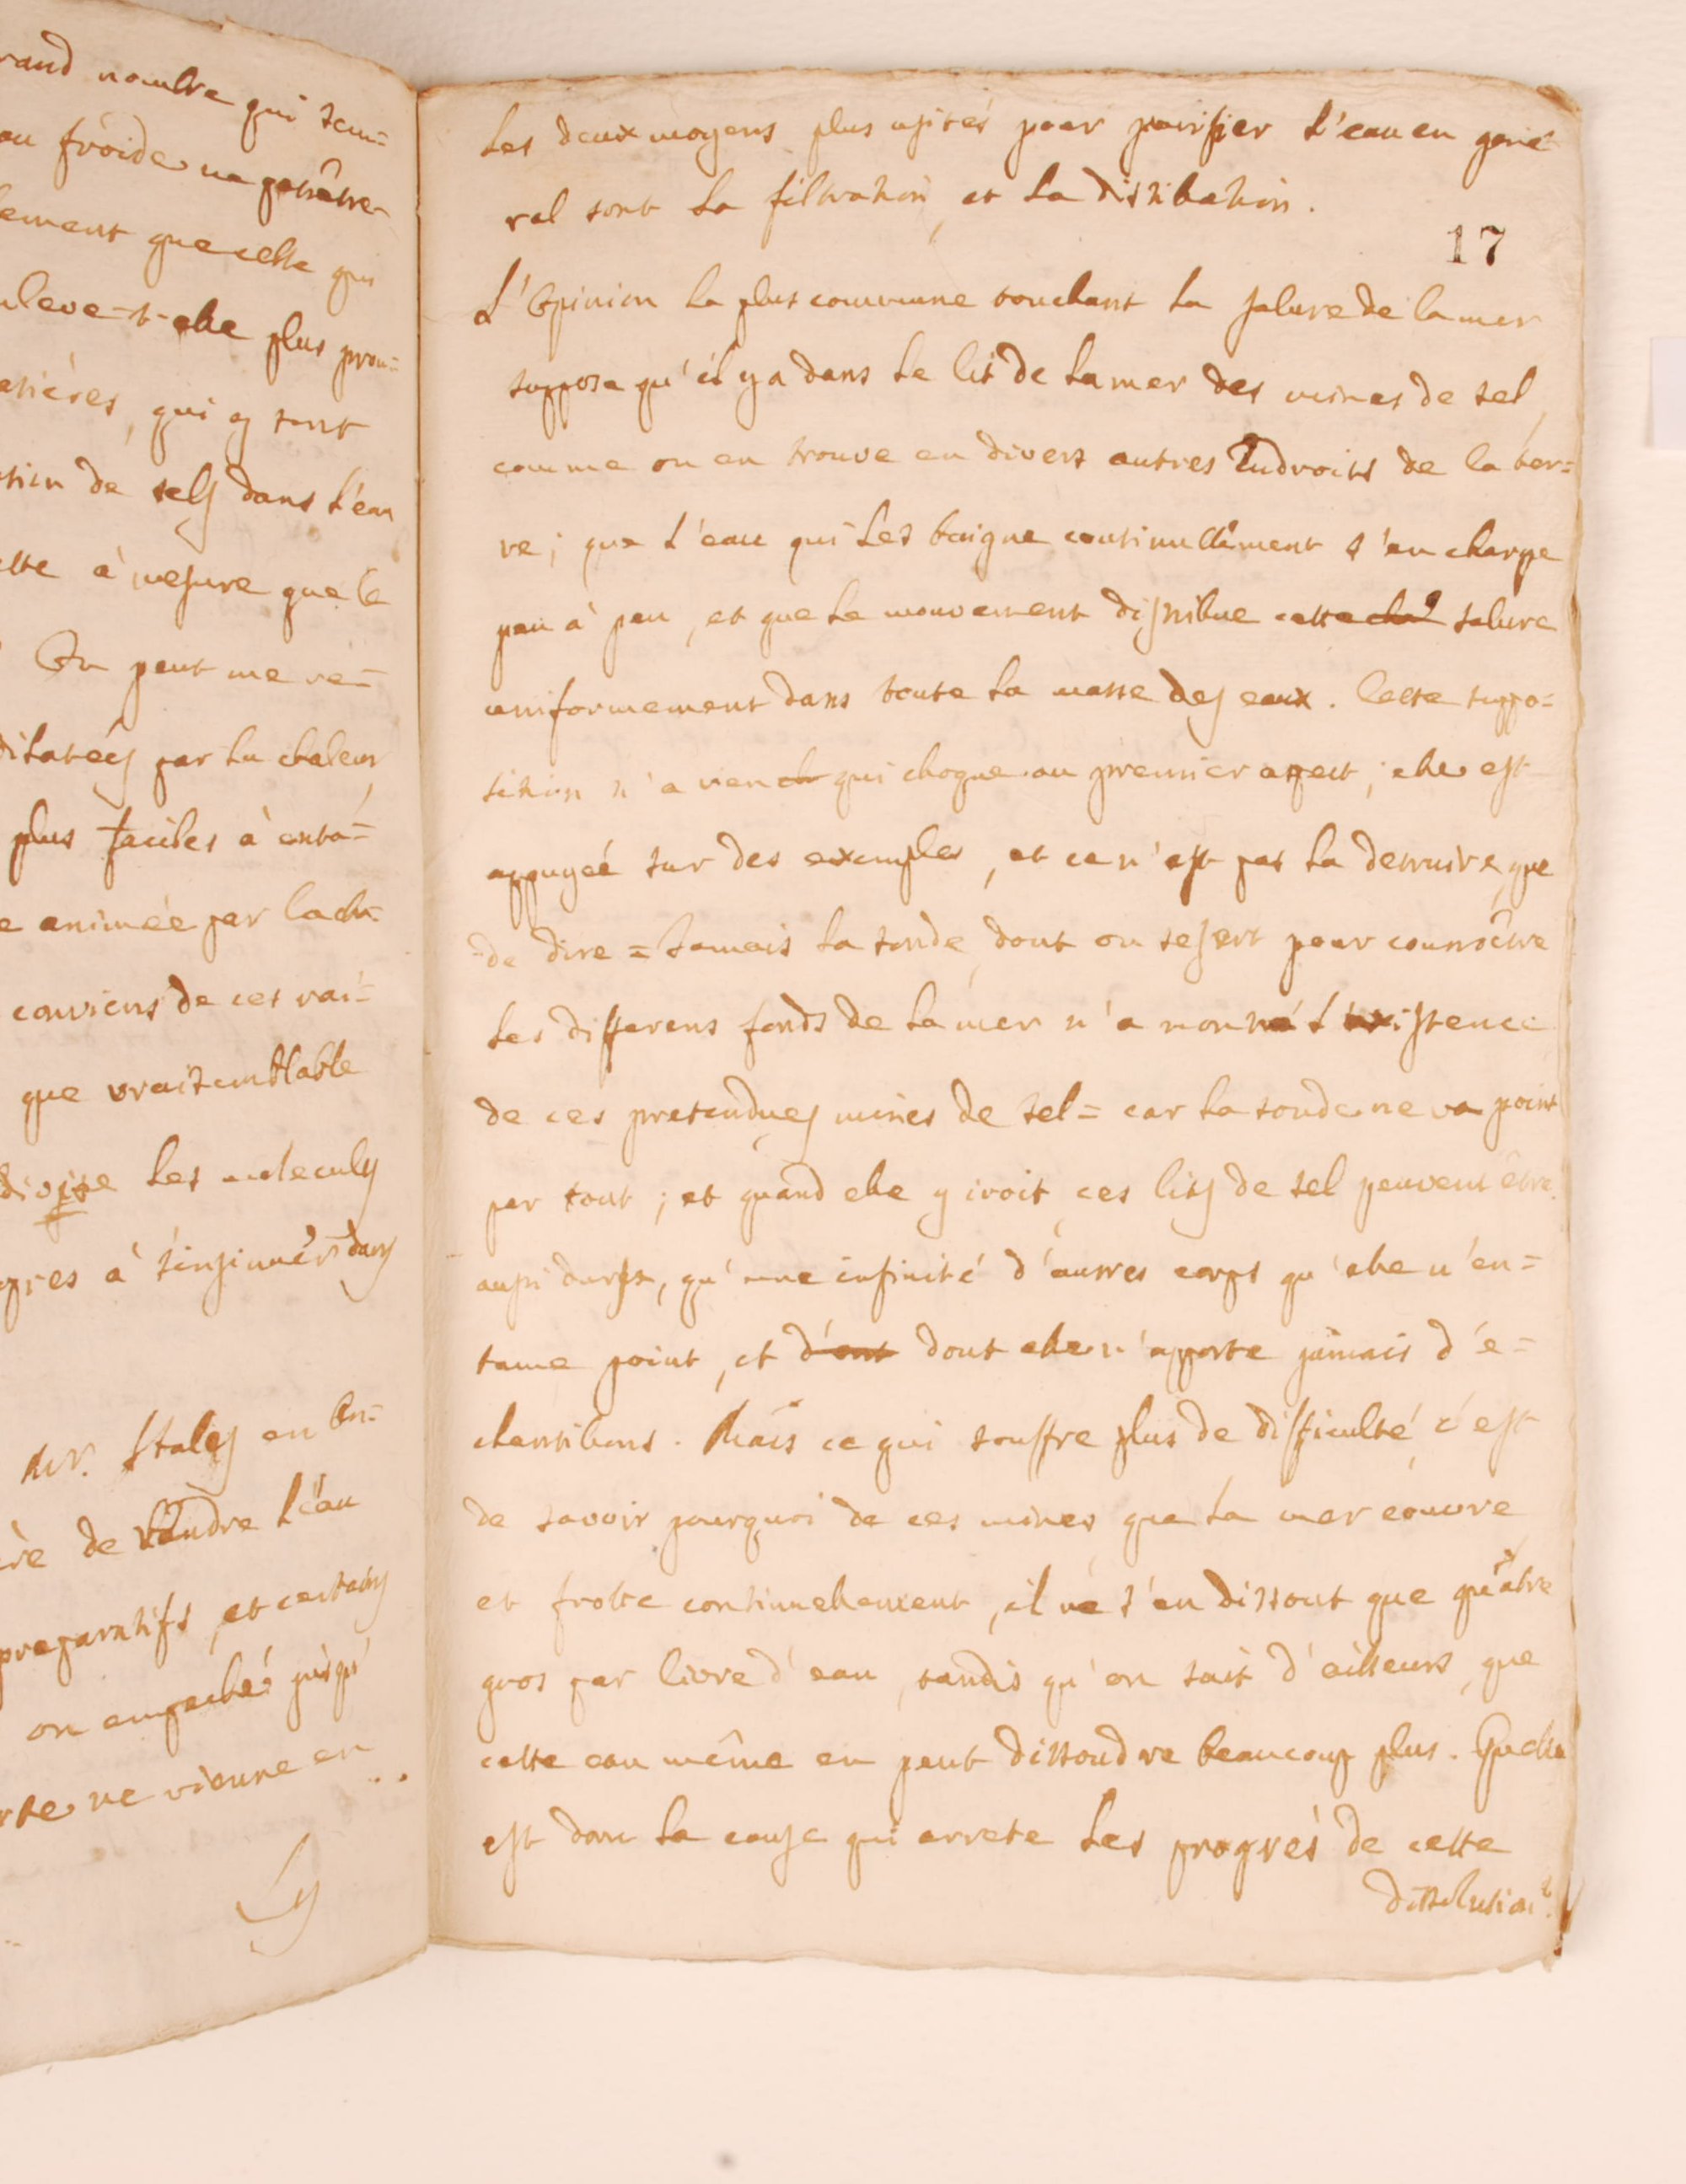 rand nombre qui sem=
au froide ne penètre
lement que celle qui
uleve-t-elle plus prom=
atiéres, qui y sont
sion de sels dans l'eau
ette à mesure que le
On peut me re=
dilatées par la chaleur,
plus faciles à enta=
e animée par la cha=
conviens de ces rai=
que vraisemblable
divise les molecules
pres à s'insinuer dans
Mr. Hales en
ère de rendre l'eau
preparatifs, et certains
on empeché jusqu'
rte ne vienne en
Les
Les deux moyens plus usités pour purifier l'eau en gené
ral sont la filtration, et la distilation.
17
L'Opinion la plus commune touchant la salure de la mer
suppose qu'il y a dans le lit de la mer des mines de sel,
comme on en trouve en divers autres Endroits de la ter=
re; que l'eau qui les baigne continuellement s'en charge
peu à peu, et que le mouvement distribue cette salure
uniformement dans toute la masse des eaux. Cette suppo=
sition n'a rien qui choque au premier aspect; elle est
appuyée sur des exemples, et ce n'est pas la detruire, que
de dire = Jamais la sonde, dont on se sert pour connoître
les differens fonds de la mer n'a montré l'existence
de ces pretendues mines de sel = car la sonde ne va point
par tout; et quand elle y iroit, ces lits de sel peuvent être
aussi durs, qu'une infinité d'autres corps qu'elle n'en=
tame point, et d'ont dont elle n'apporte jamais d'é=
chantilions. Mais ce qui souffre plus de difficulté, c'est
de savoir pourquoi de ces mines, que la mer couvre
et frotte continuellement, il ne s'en dissout que quatre
gros par livre d'eau, tandis qu'on sait d'ailleurs, que
cette eau même en peut dissoudre beaucoup plus. Quelle
est donc la cause qui arrete les progrès de cette
dissolution?